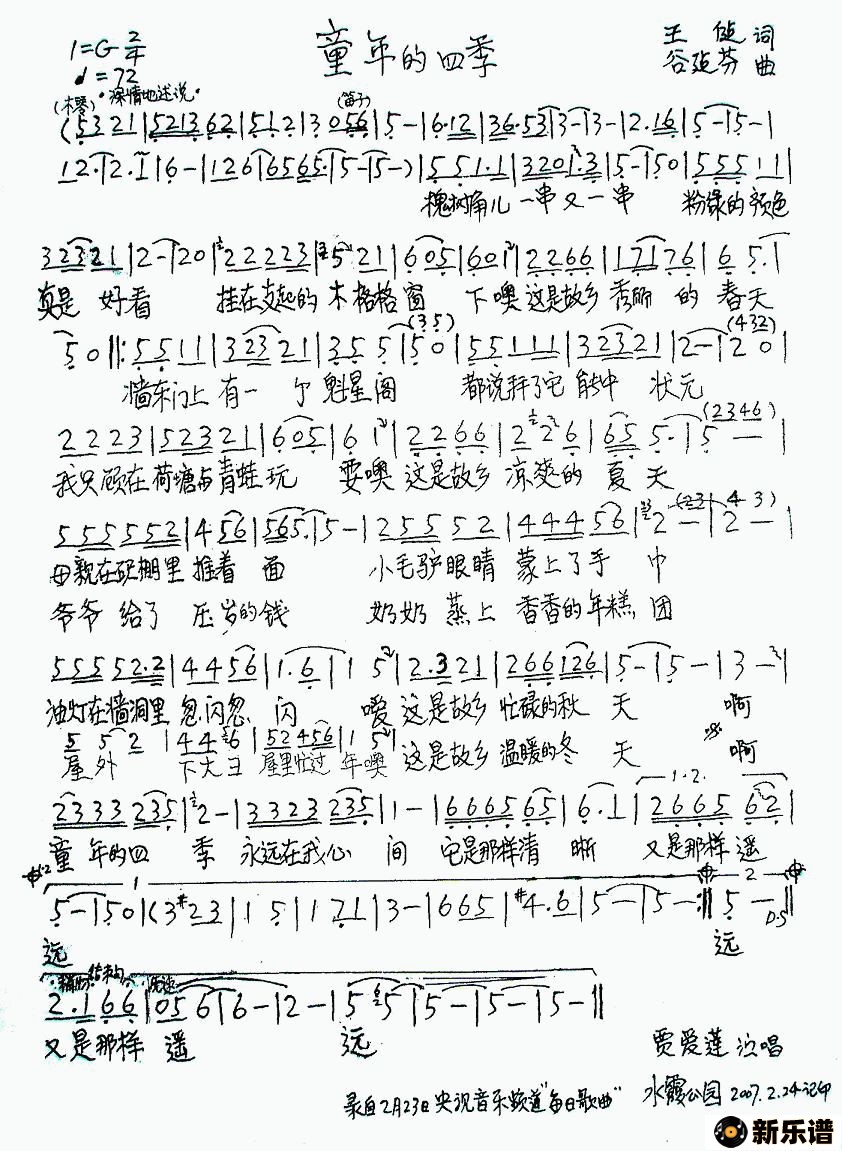 童年的四季
1=G 2/4
♩=72
王健 词
谷建芬 曲
(木琴) "深情地述说" (笛子)
(5 3 2 1 | 5 2 1 3 6 2 | 5 1 2 | 3 0 5 6 | 5 - | 6· 1 2 | 3 6· 5 3 | 3 - | 3 - | 2· 1 6 | 5 - | 5 - |
1 2· | 2· 1 | 6 - | 1 2 6 | 6 5 6 5· | 5 - | 5 - ) | 5 5 1· 1 | 3 2 0 1· 3 | 5 - | 5 0 | 5 5 5 1 1 |
槐树角儿 一串又一串 粉绿的颜色
3 2 3 2 1 | 2 - | 2 0 | 2 2 2 2 3 | 5 2 1 | 6 0 5 | 6 0 1 | 2 2 6 6 | 1 7 1 7 6 | 6 5· |
真是 好看 挂在支起的 木格格窗 下噢 这是故乡 秀丽 的 春天
(3 5) (4 3 2)
5 0 ‖: 5 5 1 1 | 3 2 3 2 1 | 3 5 5 | 5 0 | 5 5 1 1 1 | 3 2 3 2 1 | 2 - | 2 0 |
墙东门上 有一 个 魁星阁 都说拜了它 能中 状元
(2 3 4 6)
2 2 2 3 | 5 2 3 2 1 | 6 0 5 | 6 1 | 2 2 6 6 | 2 2 6 | 6 5 5· | 5 - |
我只顾在 荷塘与青蛙 玩 耍噢 这是故乡 凉爽的 夏 天
5 5 5 5 5 2 | 4 5 6 | 5 6 5· | 5 - | 2 5 5 5 2 | 4 4 4 5 6 | 2 - (2 3 | 2 - 4 3) |
母亲在砚棚里 推着 面 小毛驴眼睛 蒙上了手 巾
爷爷 给了 压岁的钱 奶奶 蒸上 香香的年糕 团
5 5 5 5 2· 2 | 4 4 5 6 | 1· 6 | 1 5 | 2· 3 2 1 | 2 6 6 1 2 6 | 5 - | 5 - | 3 - |
油灯在墙洞里 忽闪忽 闪 噯 这是故乡 忙碌的秋 天 啊
5 5 2 | 4 4 6 | 5 2 4 5 6 | 1 5
屋外 下大雪 屋里忙过 年噢 这是故乡 温暖的冬 天 啊
1. 2.
2 3 3 3 2 3 5 | 2 - | 3 3 2 3 2 3 5 | 1 - | 6 6 6 5 6 5 | 6· 1 | 2 6 6 5 6 2 |
童 年的四 季 永远在我心 间 它是那样清 晰 又是那样遥
1 2
5 - | 5 0 | (3 #2 3 | 1 5 | 1 7 1 | 3 - | 6 6 5 | #4· 6 | 5 - | 5 - :‖ 5 - ‖ D.S
远 远
结束句
2· 1 6 6 | 0 5 6 | 6 - | 2 - | 5 5 | 5 - | 5 - | 5 - ‖
又是那样 遥 远
贾爱莲 演唱
录自2月23日央视音乐频道"每日歌曲" 水霞公园 2007.2.24记印
新乐谱